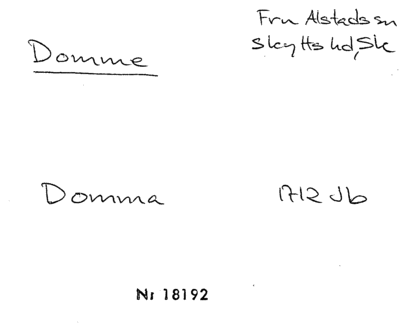 Domme
Fru Alstads sn
Skytts hd, Sk
Domma
1712 Jb
Nr 18192